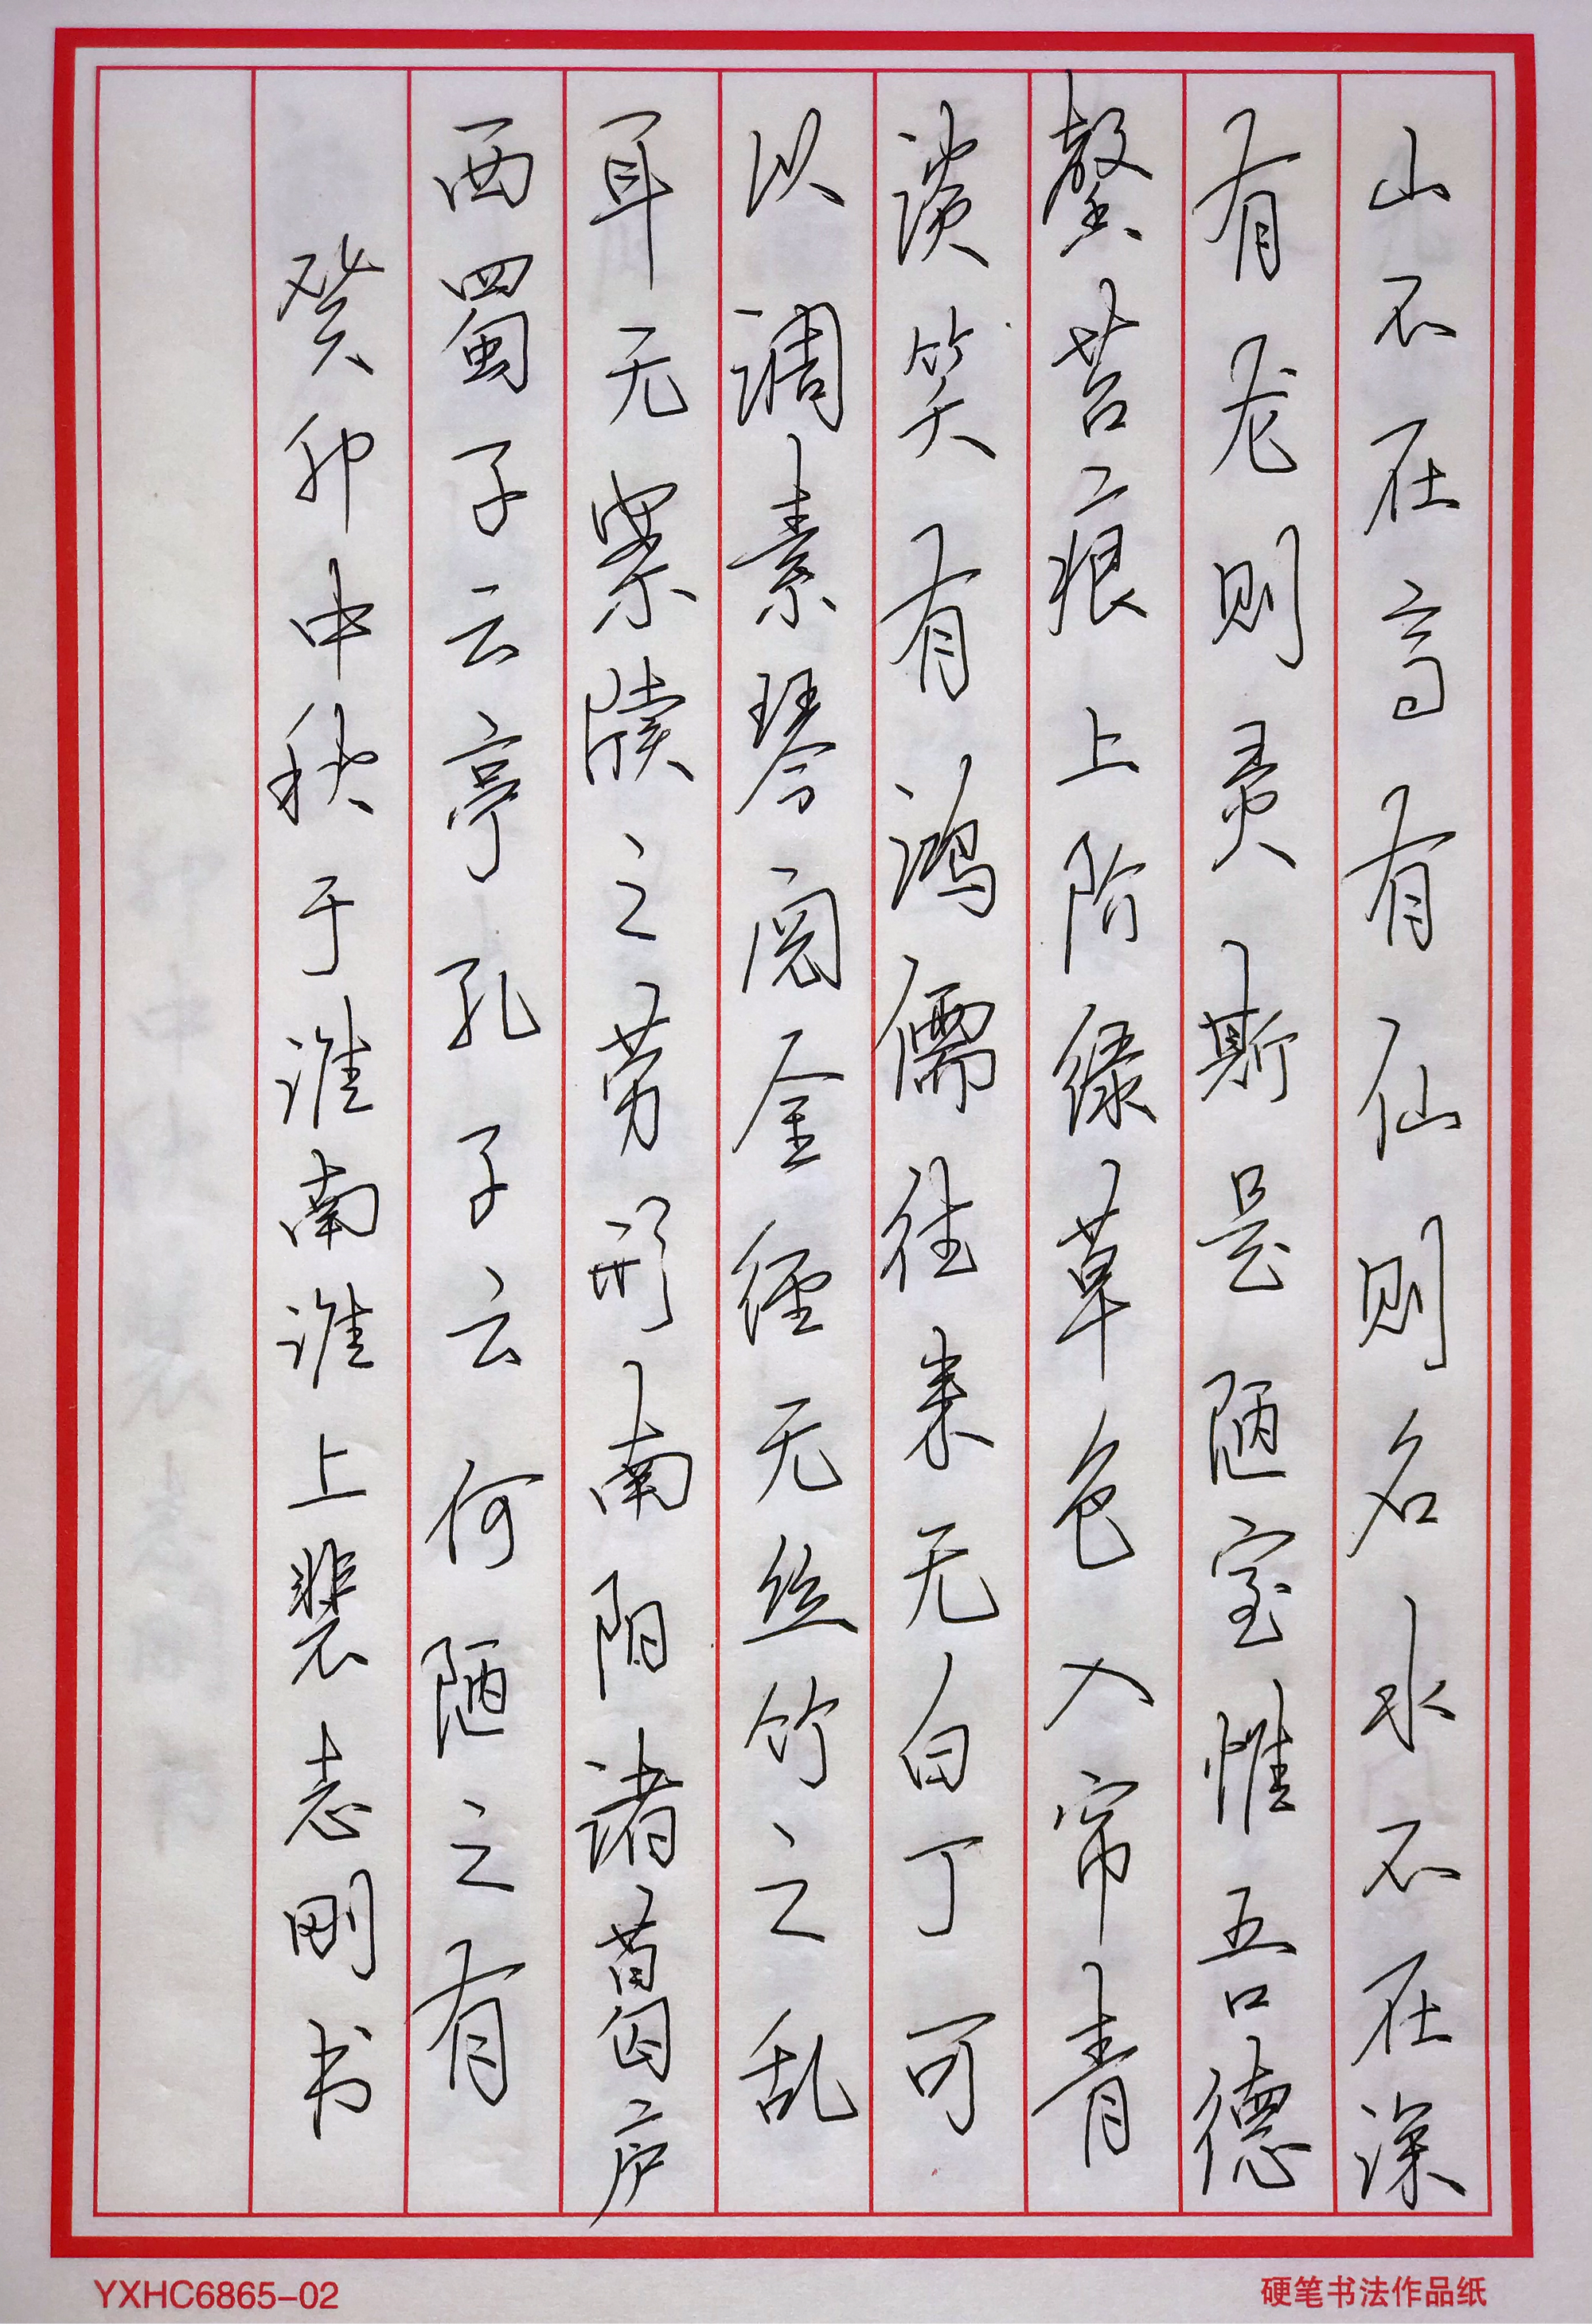 山不在高有仙则名水不在深
有龙则灵斯是陋室惟吾德
馨苔痕上阶绿草色入帘青
谈笑有鸿儒往来无白丁可
以调素琴阅金经无丝竹之乱
耳无案牍之劳形南阳诸葛庐
西蜀子云亭孔子云何陋之有
癸卯中秋于淮南淮上裴志刚书
YXHC6865-02
硬笔书法作品纸